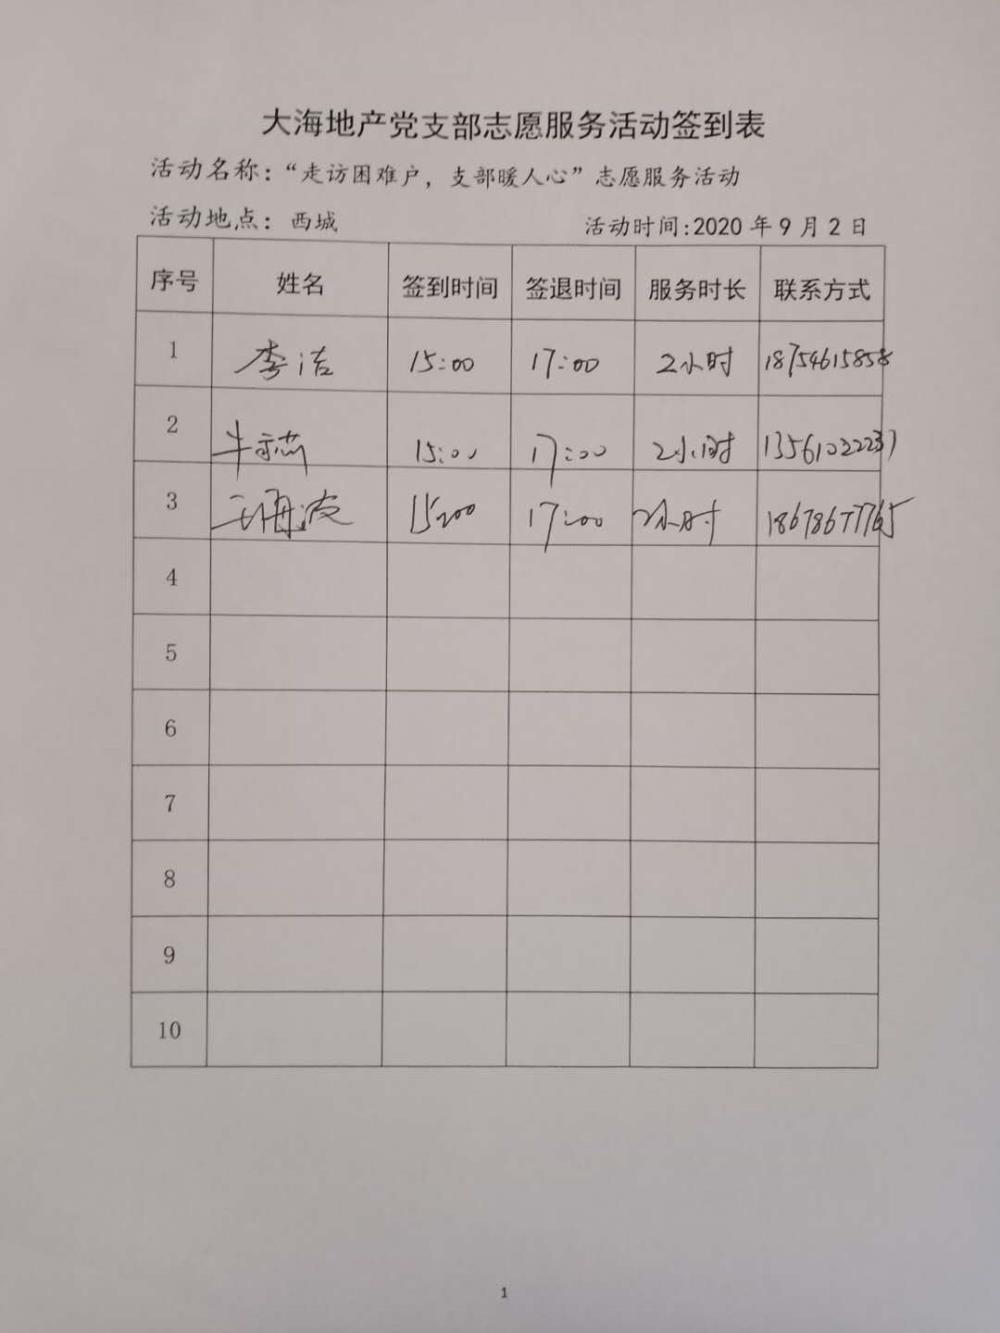 大海地产党支部志愿服务活动签到表
活动名称：“走访困难户，支部暖人心”志愿服务活动
活动地点：西城 活动时间:2020 年 9 月 2 日
序号 姓名 签到时间 签退时间 服务时长 联系方式
1 李洁 15:00 17:00 2小时 18754615858
2 牛 15:00 17:00 2小时 13561022237
3 王 15:00 17:00 2小时 18678677765
4
5
6
7
8
9
10
1